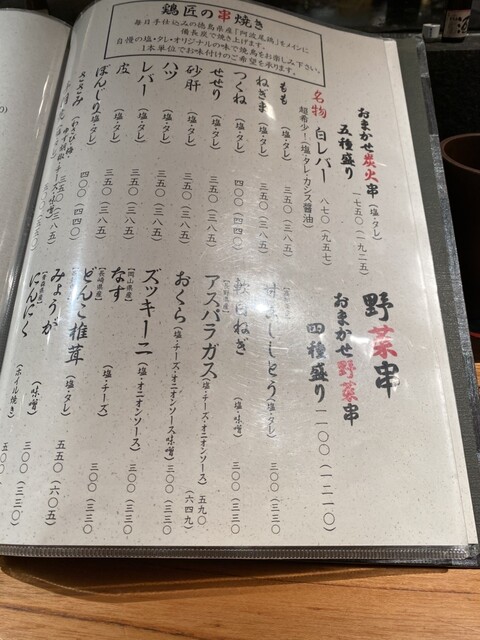 鶏匠の串焼き
毎日手仕込みの徳島県産「阿波尾鶏」をメインに
備長炭で焼き上げます。
自慢の塩・タレ・オリジナルの味で焼鳥をお楽しみ下さい。
1本単位でお味付けのご希望を承ります。
おまかせ炭火串(塩・タレ)
五種盛り 一七五〇(一九二五)
名物 白レバー 八七〇(九五七)
超希少!(塩・タレ・カシス醤油)
もも(塩・タレ) 三五〇(三八五)
ねぎま(塩・タレ) 三五〇(三八五)
つくね(塩・タレ) 四〇〇(四四〇)
せせり(塩・タレ) 三五〇(三八五)
砂肝(塩・タレ) 三五〇(三八五)
ハツ(塩・タレ) 三五〇(三八五)
レバー(塩・タレ) 三五〇(三八五)
皮(塩・タレ) 三五〇(三八五)
ぼんじり(塩・タレ) 四〇〇(四四〇)
ささみ(わさび・梅
ゆず胡椒・チーズ・味噌) 三五〇(三八五)
野菜串
おまかせ野菜串
四種盛り 一一〇〇(一二一〇)
甘ししとう(塩・タレ) 三〇〇(三三〇)
軟白ねぎ(塩・味噌) 三〇〇(三三〇)
アスパラガス(塩・チーズ・オニオンソース) 五九〇(六四九)
おくら(塩・チーズ・オニオンソース・味噌) 三〇〇(三三〇)
ズッキーニ(塩・オニオンソース) 三〇〇(三三〇)
[岡山県産]
なす(塩・チーズ) 三〇〇(三三〇)
[長崎県産]
どんこ椎茸(塩・タレ) 五五〇(六〇五)
みょうが(味噌) 三〇〇(三三〇)
[青森県産]
にんにく(ホイル焼き) 三〇〇(三三〇)